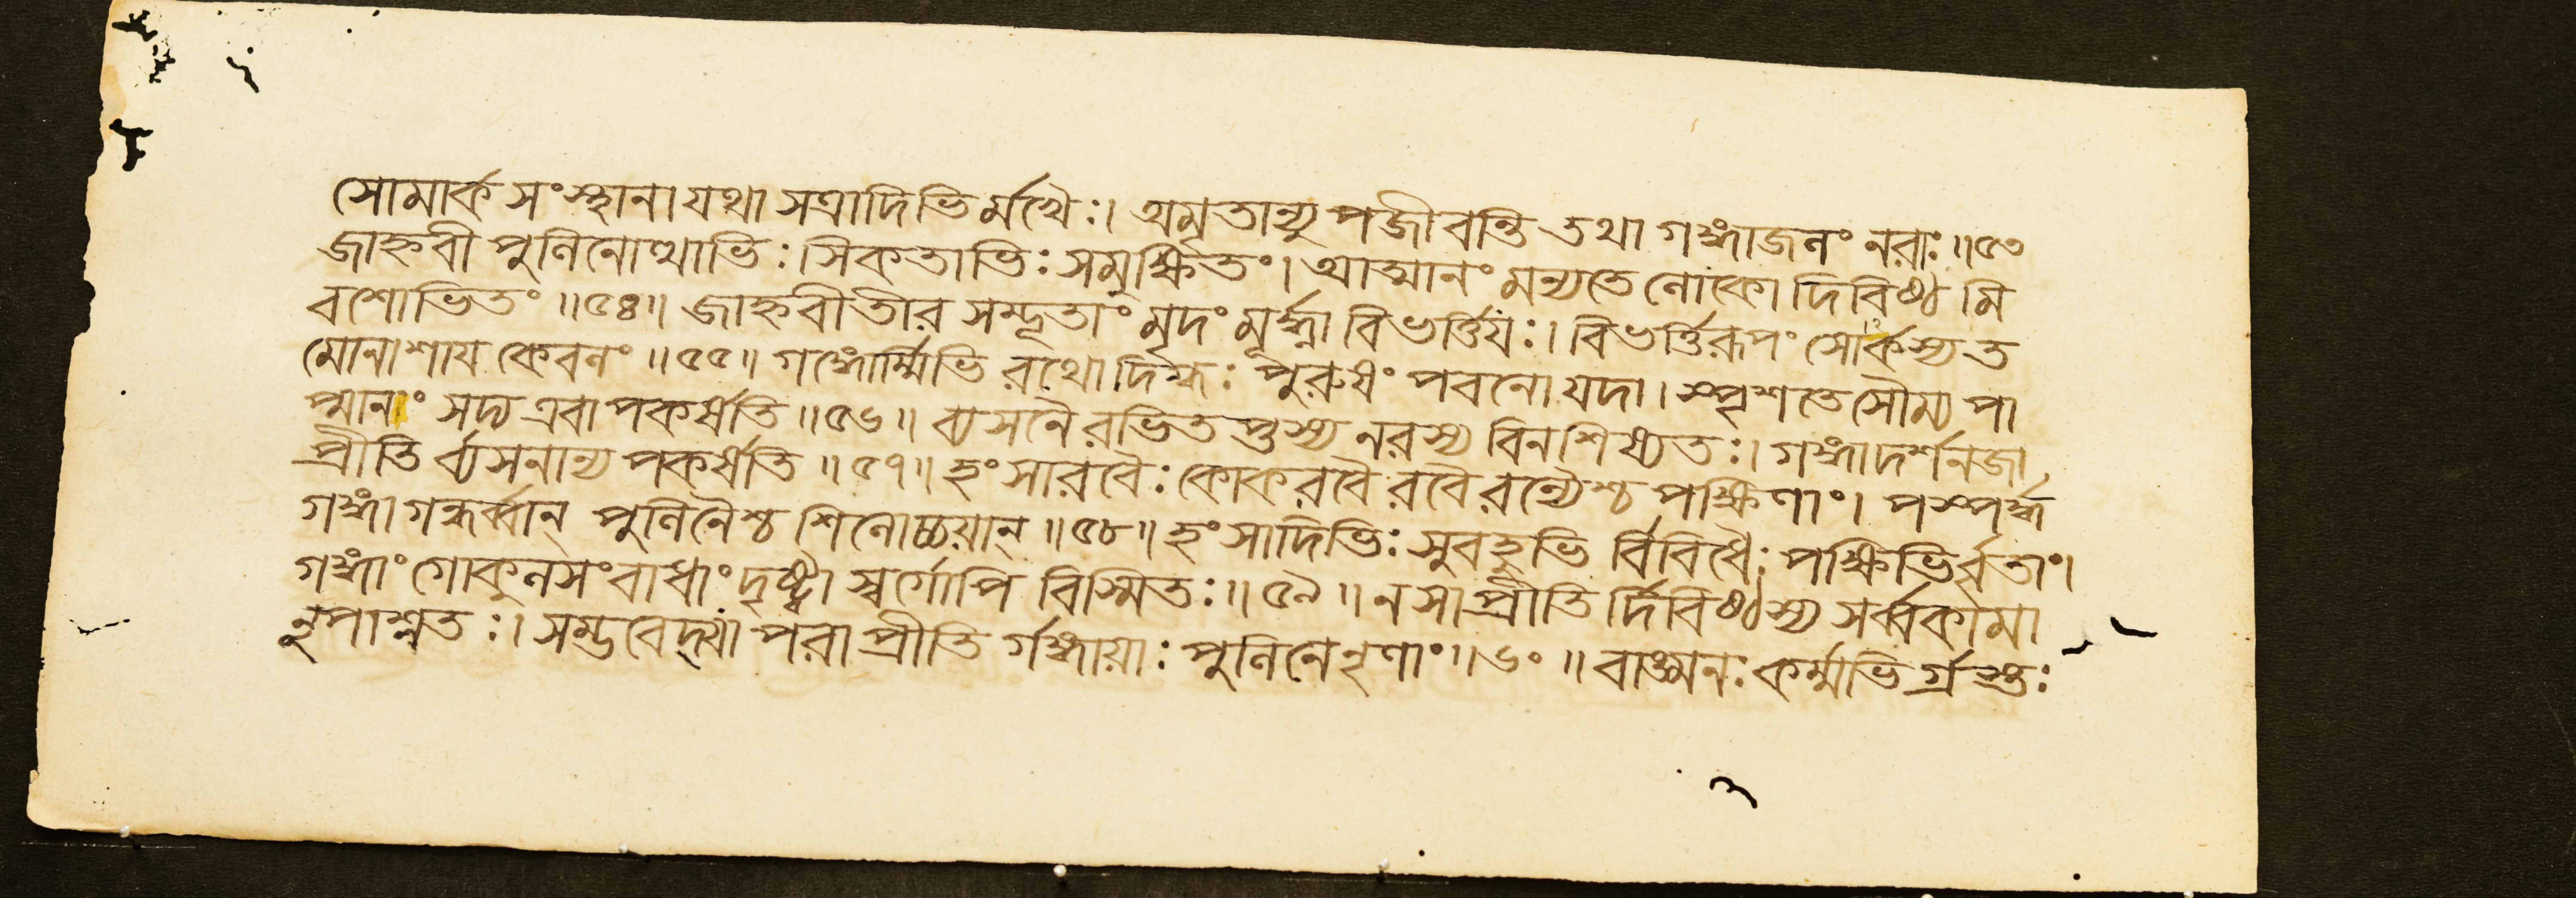 সোমার্ক সংস্থানা যথা সত্রাদিভির্মখৈঃ। অমৃতান্যুপজীবন্তি তথা গঙ্গাজলং নরাঃ ॥৫৩
জাহ্নবী পুলিনোত্থাভিঃ। সিকতাভিঃ সমুক্ষিতং। আত্মানং মন্যতে লোকো দিবিষ্ঠমি
বশোভিতং ॥৫৪॥ জাহ্নবীতীর সম্ভূতাং মৃদং মূর্দ্ধ্না বিভর্ত্তি যঃ। বিভর্ত্তি রূপং সোর্কস্য ত
মোনাশায কেবলং ॥৫৫॥ গঙ্গোর্ম্মিভিরথো দিগ্ধঃ পুরুষং পবনো যদা। স্পৃশতে সৌম্য পা
প্মানাং সদ্য এবাপকর্ষতি ॥৫৬॥ ব্যসনৈরভিতপ্তস্য নরস্য বিনশিষ্যতঃ। গঙ্গাদর্শনজা
প্রীতি র্ব্যসনান্যপকর্ষতি ॥৫৭॥ হংসারবৈঃ কোকরবৈ রবৈরন্যৈশ্চ পক্ষিণাং। পস্পর্দ্ধ
গঙ্গা গন্ধর্ব্বান্ পুলিনৈশ্চ শিলোচ্চয়ান্ ॥৫৮॥ হংসাদিভিঃ সুবহুভি র্বিবিধৈঃ পক্ষিভির্বৃতাং।
গঙ্গাং গোকুলসংবাধাং দৃষ্ট্বা স্বর্গোপি বিস্মিতঃ ॥৫৯॥ ন সা প্রীতি র্দিবিষ্ঠস্য সর্ব্বকামা
নুপাশ্নতঃ। সম্ভবেদ্যা পরা প্রীতি র্গঙ্গায়াঃ পুলিনে নৃণাং ॥৬০॥ বাঙ্মনঃ কর্ম্মভি র্গ্রস্তঃ